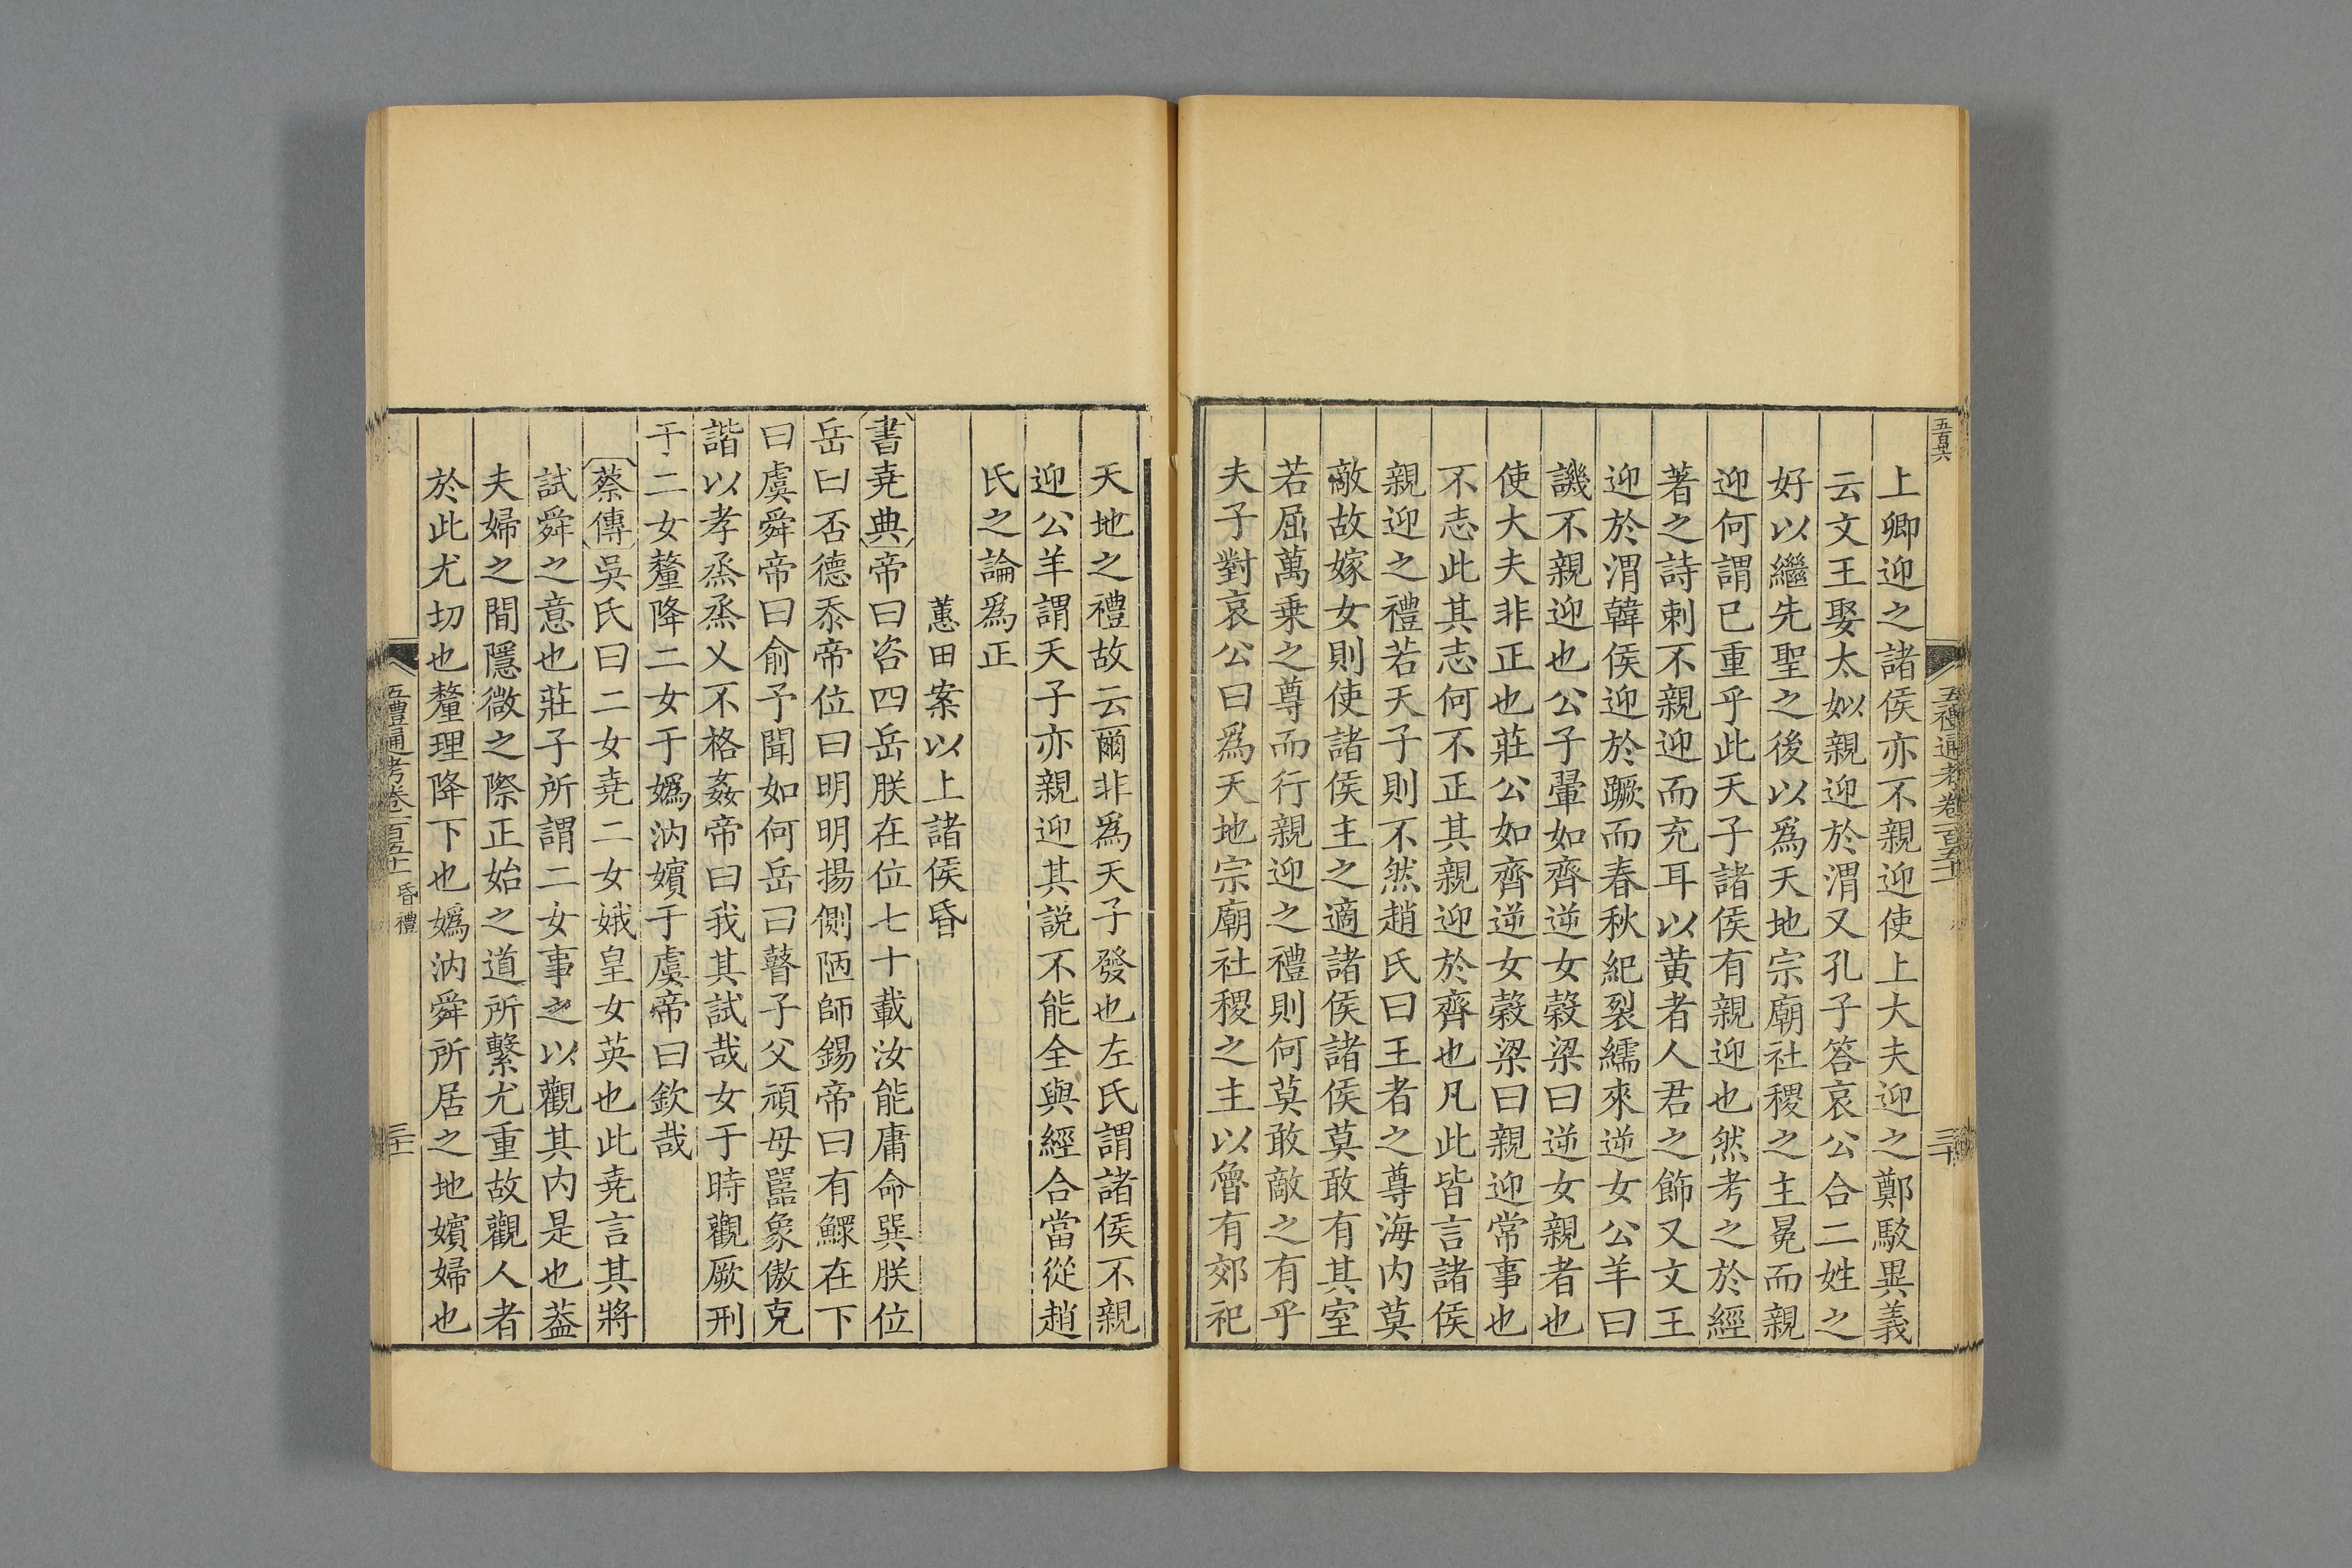 五百共
五禮通考卷一百五十一
三十
上卿迎之諸侯亦不親迎使上大夫迎之鄭駮異義
云文王娶太姒親迎於渭又孔子答哀公合二姓之
好以繼先聖之後以爲天地宗廟社稷之主冕而親
迎何謂已重乎此天子諸侯有親迎也然考之於經
著之詩刺不親迎而充耳以黄者人君之飾又文王
迎於渭韓侯迎於蹶而春秋紀裂繻來逆女公羊曰
譏不親迎也公子翬如齊逆女穀梁曰逆女親者也
使大夫非正也莊公如齊逆女穀梁曰親迎常事也
不志此其志何不正其親迎於齊也凡此皆言諸侯
親迎之禮若天子則不然趙氏曰王者之尊海内莫
敵故嫁女則使諸侯主之適諸侯諸侯莫敢有其室
若屈萬乗之尊而行親迎之禮則何莫敢敵之有乎
夫子對哀公曰爲天地宗廟社稷之主以魯有郊祀
天地之禮故云爾非爲天子發也左氏謂諸侯不親
迎公羊謂天子亦親迎其説不能全與經合當從趙
氏之論爲正
蕙田案以上諸侯昏
書堯典帝曰咨四岳朕在位七十載汝能庸命巽朕位
岳曰否德忝帝位曰明明揚側陋師錫帝曰有鰥在下
曰虞舜帝曰俞予聞如何岳曰瞽子父頑母嚚象傲克
諧以孝烝烝乂不格姦帝曰我其試哉女于時觀厥刑
于二女釐降二女于嬀汭嬪于虞帝曰欽哉
蔡傳吳氏曰二女堯二女娥皇女英也此堯言其將
試舜之意也莊子所謂二女事之以觀其内是也葢
夫婦之間隱微之際正始之道所繫尤重故觀人者
於此尤切也釐理降下也嬀汭舜所居之地嬪婦也
五禮通考卷一百五十一 昏禮
三十一